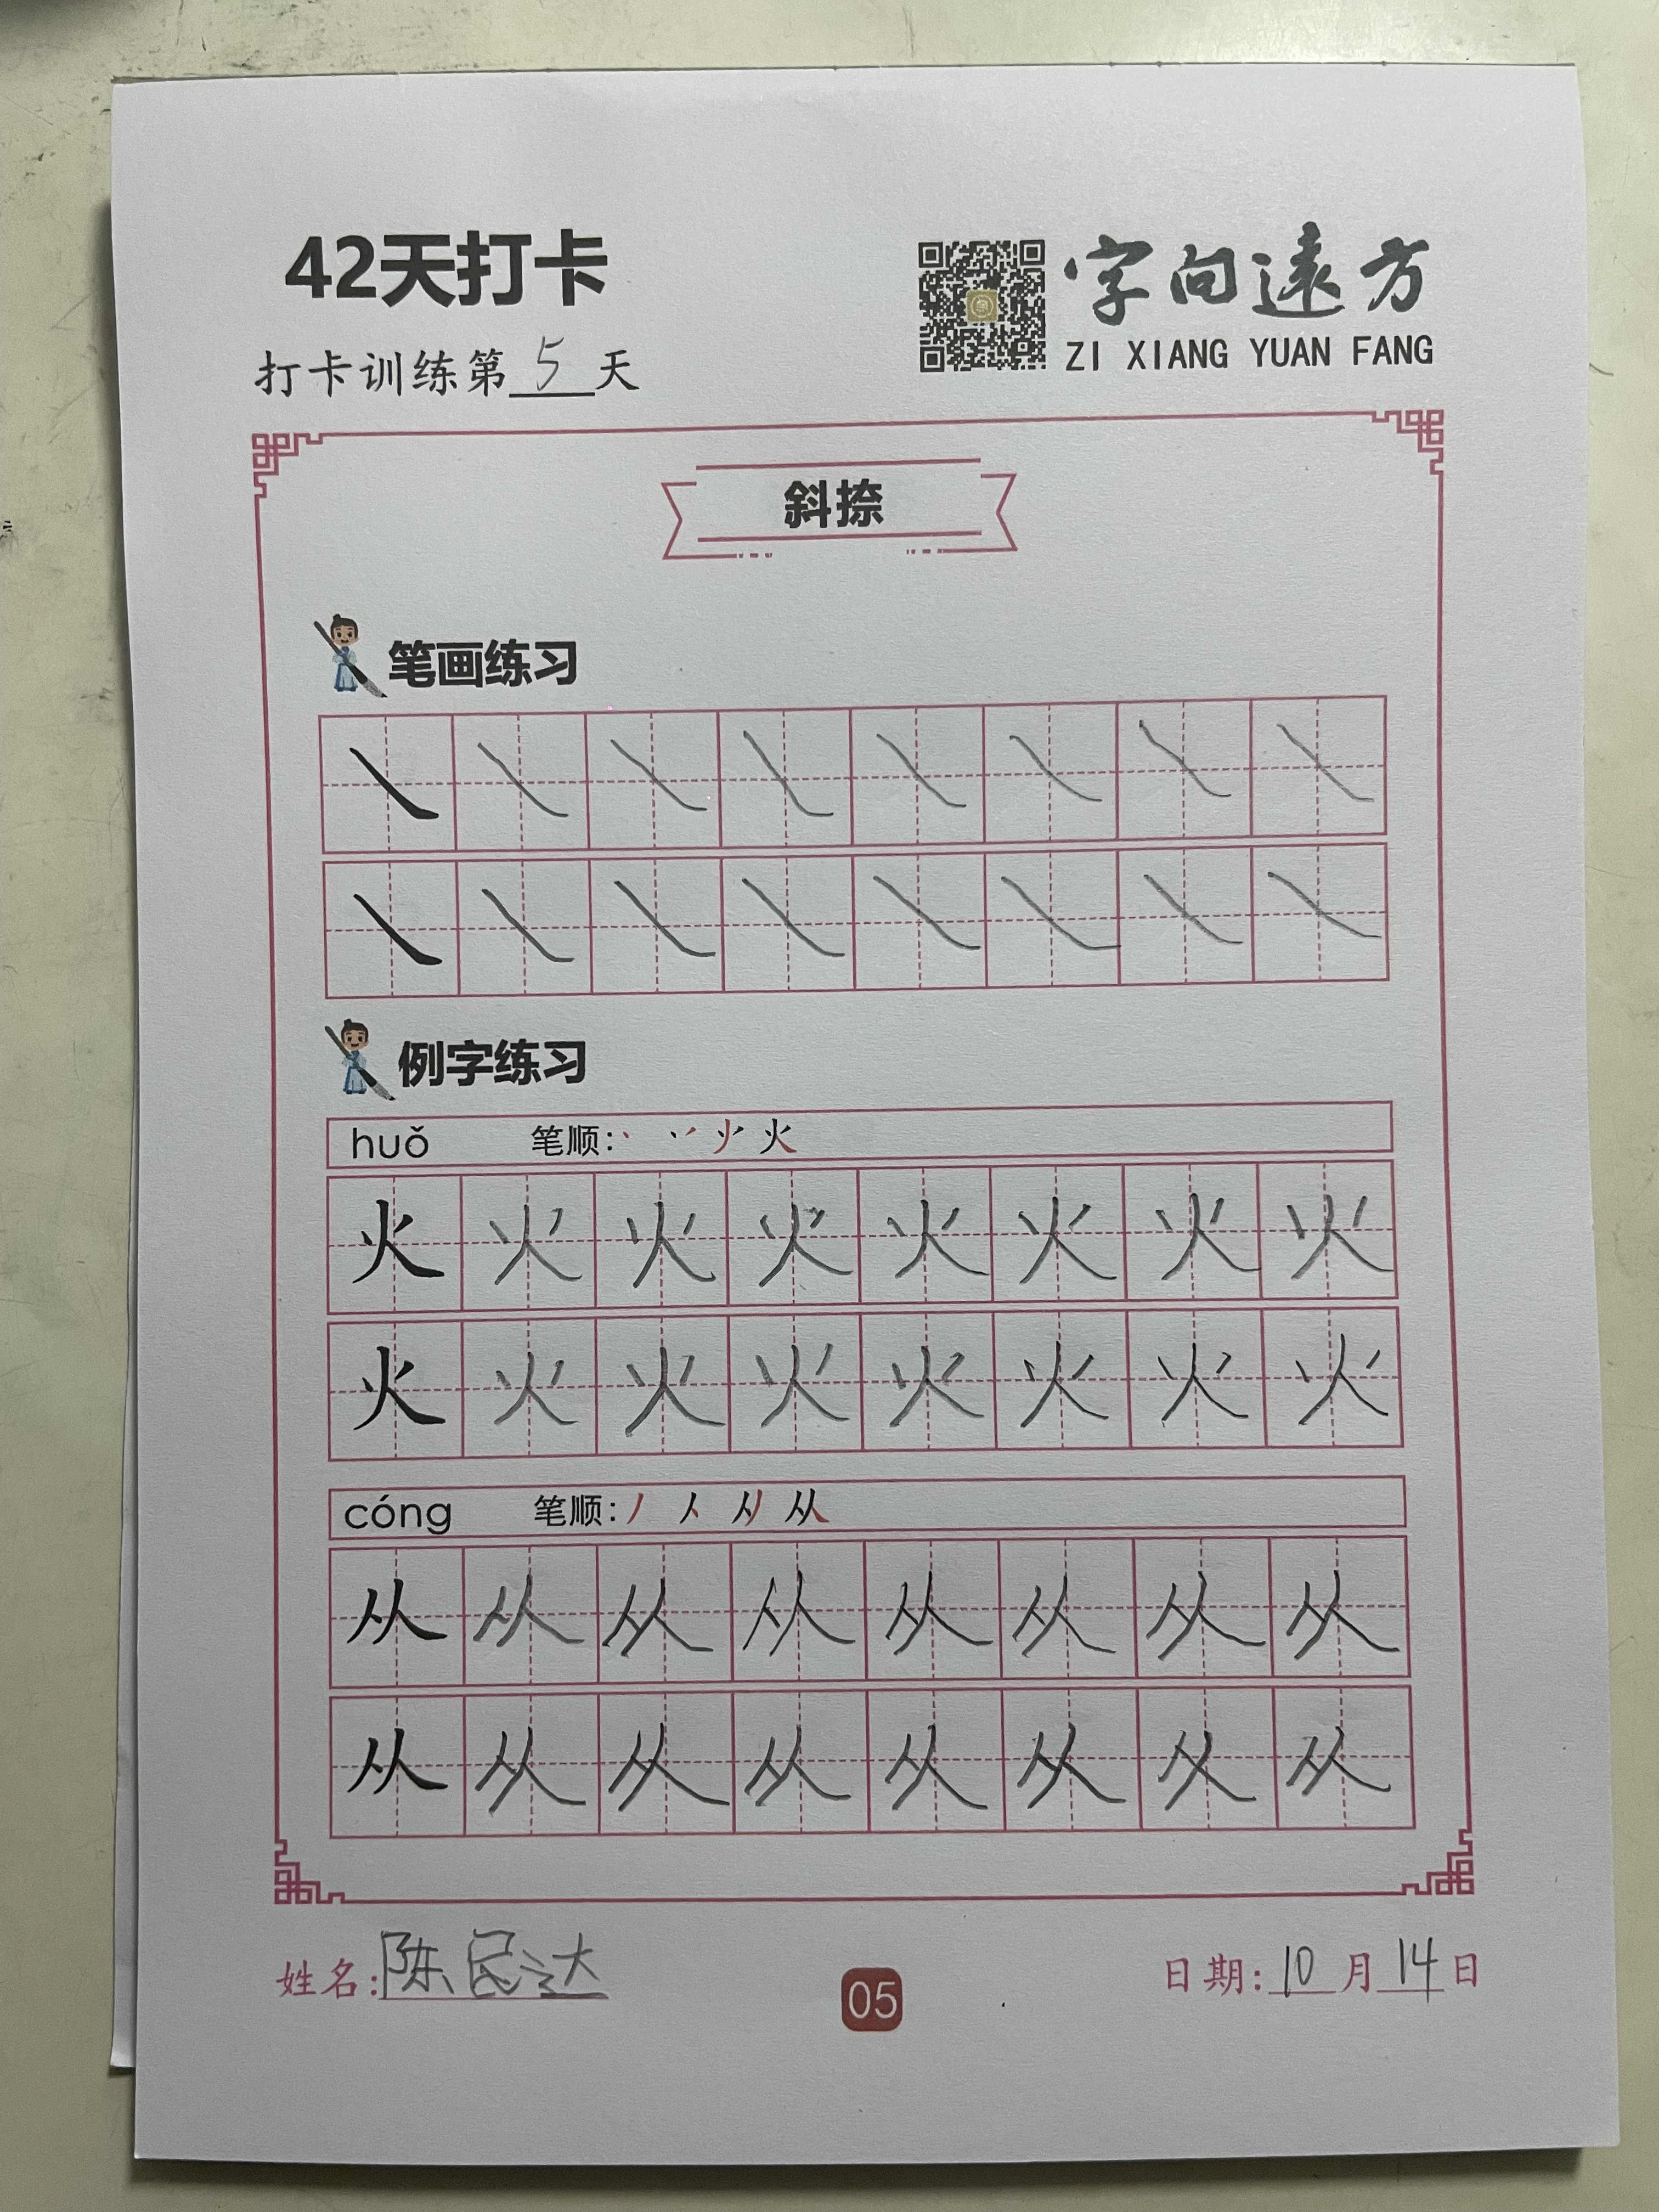 42天打卡
字向遠方
ZI XIANG YUAN FANG
打卡训练第5天
斜捺
笔画练习
㇏ ㇏ ㇏ ㇏ ㇏ ㇏ ㇏ ㇏
㇏ ㇏ ㇏ ㇏ ㇏ ㇏ ㇏ ㇏
例字练习
huǒ 笔顺: 火
火 火 火 火 火 火 火 火
火 火 火 火 火 火 火 火
cóng 笔顺: 丿 人 从
从 从 从 从 从 从 从 从
从 从 从 从 从 从 从 从
姓名:陈民达
05
日期:10月14日